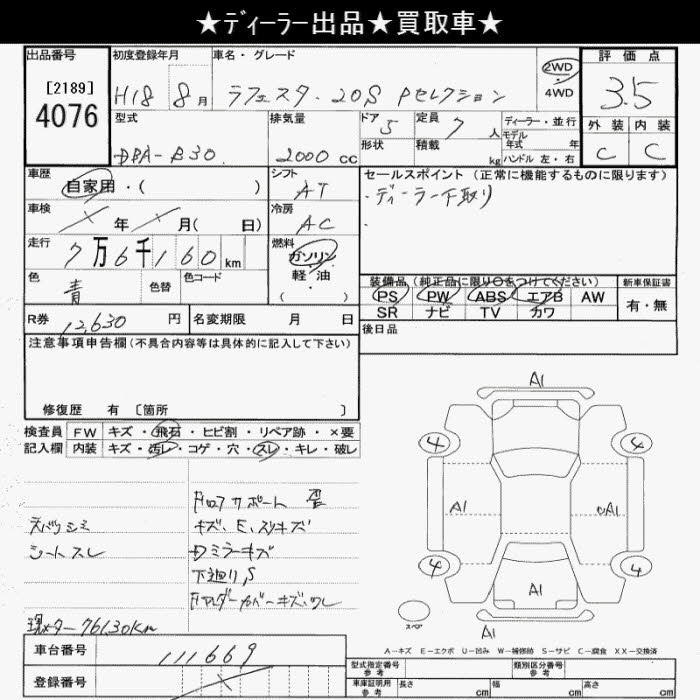 ★ディーラー出品★買取車★
出品番号
[2189]
4076
初度登録年月
H18 8月
車名・グレード
ラフェスタ・20S Pセレクション
2WD
4WD
評価点
3.5
外装 内装
C C
型式
DBA-B30
排気量
2000cc
ドア 5
形状
定員 7人
積載 kg
ディーラー・並行
モデル
年式 年
ハンドル 左・右
車歴
自家用・( )
シフト
AT
セールスポイント (正常に機能するものに限ります)
・ディーラー下取り
・
車検
年 月( 日)
冷房
AC
走行
7万6千160km
燃料
ガソリン
軽・油
( )
色
青
色替
色コード
装備品 (純正品に限り○をつけてください)
PS PW ABS エアB AW
SR ナビ TV カワ
新車保証書
有・無
R券 12,630円
名変期限 月 日
後日品
注意事項申告欄(不具合内容等は具体的に記入して下さい)
修復歴 有 [箇所 ]
検査員
記入欄
FW キズ・飛石・ヒビ割・リペア跡・×要
内装 キズ・汚レ・コゲ・穴・スレ・キレ・破レ
シートスレ
キズ、E、スリキズ
Dミラーキズ
下廻りS
現メーター76130km
A1
4
4
A1
A1
4
4
A1
スペア
A1
A-キズ E-エクボ U-凹み W-補修跡 S-サビ C-腐食 XX-交換済
車台番号
111669
登録番号
型式指定番号
参考
類別区分番号
参考
車庫証明用
参考
長さ cm
幅 cm
高さ cm